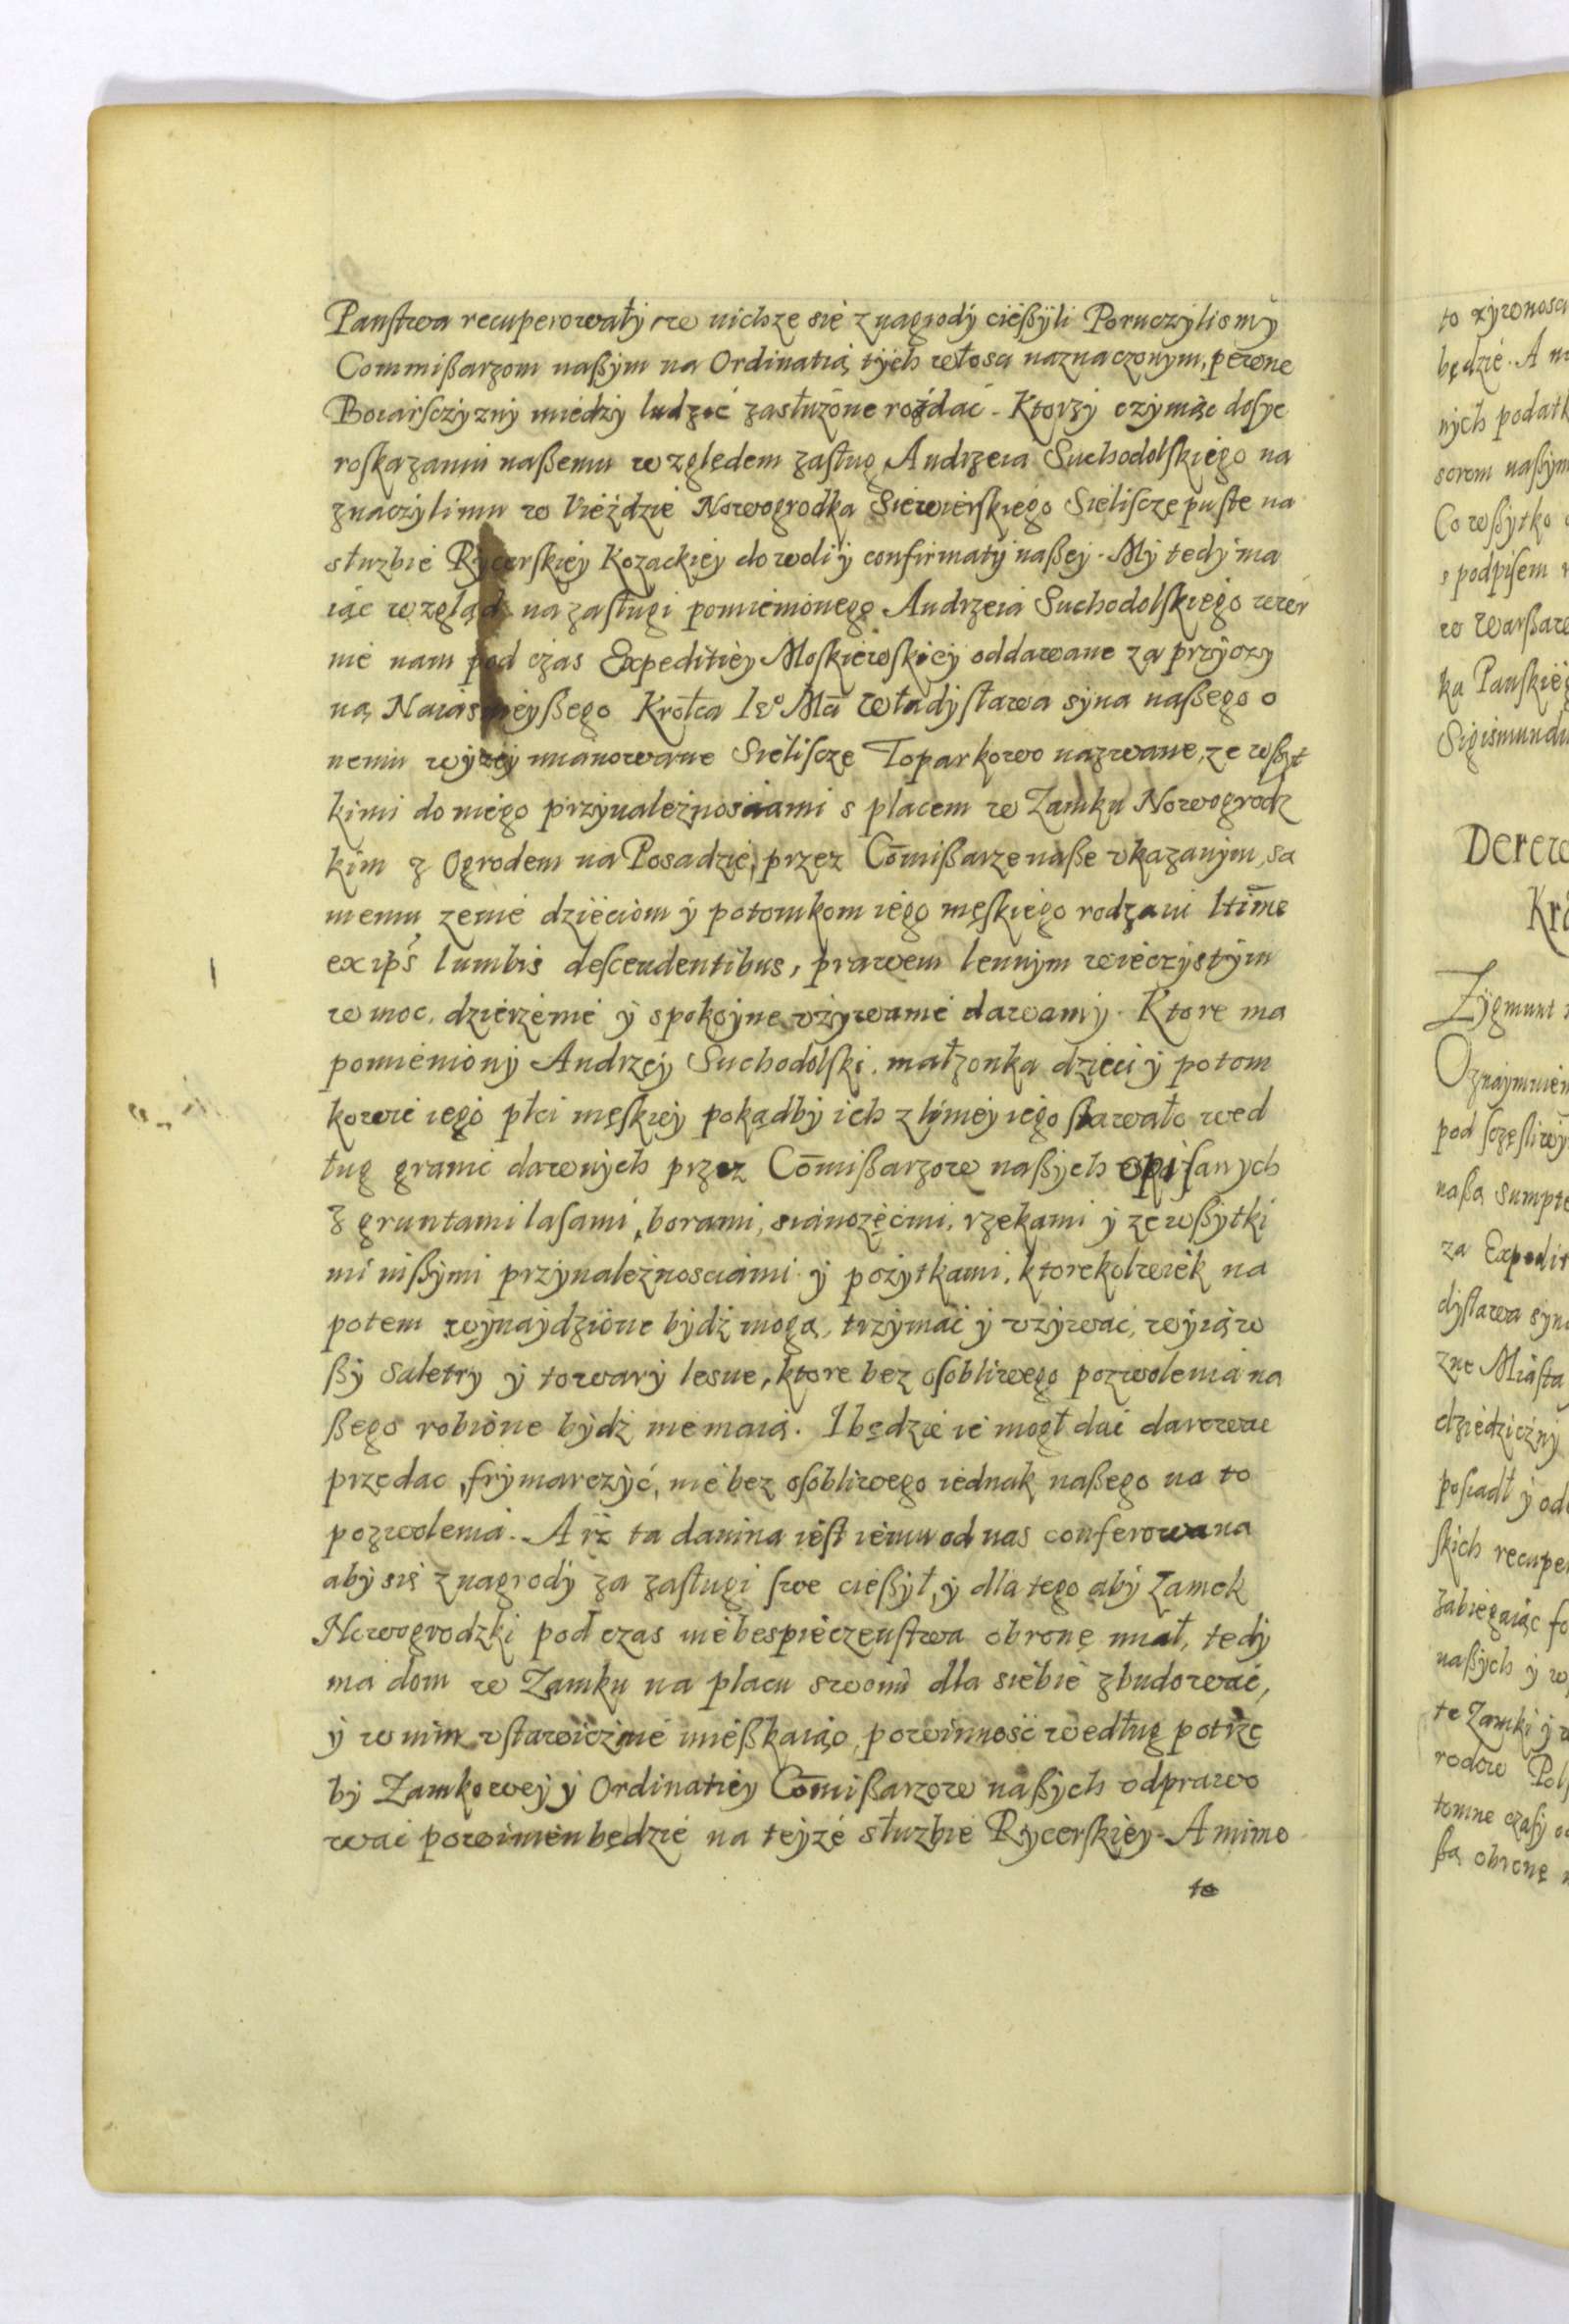 Panſtwa recuperowały, w nichże się z nagrody cieſzyli Poruczylismy
Commißarzom naßym na Ordinatią tych włosci naznaczonym, pewne
Boiarſczyzny miedzy ludzie zasłużone rozdać. Ktorzy czyniąc doſyć
roſkazaniu naßemu względem zaſług Andrzeia Suchodolſkiego na
znaczyli mu w Vieździe Nowogrodka Siewierſkiego Sieliſcze puſte na
służbie Rycerſkiey Kozackiey do woli y confirmaty naßey. My tedy ma
iąc wzgląd na zaſługi pomienionego Andrzeia Suchodolſkiego wier
nie nam pod czas Expeditiey Moſkiewſkiey oddawane za przyczy
ną Naiaśnieyßego Krołca Ieº Mci Władyſława syna naßego o
nemu wyżey mianowane Sieliſcze Toparkowo nazwane, ze wßyt
kimi do niego przynależnosciami s placem w Zamku Nowogrodz
kim z Ogrodem na Posadzie, przez Cōmißarze naße vkazanym, sa
memu żenie dzieciom y potomkom iego męſkiego rodzaiu ltime
ex ipś lumbis deſcendentibus, prawem lennym wieczystym
w moc, dzierżenie y spokoyne vżywanie dawamy. Ktore ma
pomieniony Andrzey Suchodolſki, małżonka dzieci y potom
kowie iego płci męſkiey pokądby ich z liniey iego ſtawało wed
ług granic dawnych przez Cōmißarzow naßych opiſanych
z gruntami laſami, borami, sianożęćmi, rzekami y ze wßytki
mi inßymi przynależnosciami y pożytkami, ktorekolwiek na
potem wynaydzione bydź mogą, trzymać y vżywać, wyiąw
ßy Saletry y towary lesne, ktore bez oſobliwego pozwolenia na
ßego robione bydź nie maią. I będzie ie mogł dać darować
przedać, frymarczyć, nie bez oſobliwego iednak naßego na to
pozwolenia. A iż ta danina ieſt iemu od nas conferowana
aby się z nagrody za zaſługi ſwe cießył, y dla tego aby Zamek
Nowogrodzki pod czas niebespieczenſtwa obronę miał, tedy
ma dom w Zamku na placu swoim dla siebie zbudować,
y w nim vſtawicznie mießkaiąc, powinność według potrze
by Zamkowey y Ordinatiey Cōmißarzow naßych odprawo
wać powinien będzie na teyże służbie Rycerſkiey. A mimo
to
to żywnosci
będzie. A
nych podatk
sorom naßym
Co wßytko
s podpiſem
w Warßaw
ku Panſkieg
Sigismundu
Derew
Zygmunt
Oznaymuiem
pod ſczęſliwy
naßą sumpte
za Expedit
dyſława syna
zne Miaſta
dziedziczny
poſiadł y od
ſkich recupe
zabiegaiąc fo
naßych y w
te Zamki y
rodow Pol
tomne czaſy
ßą obronę